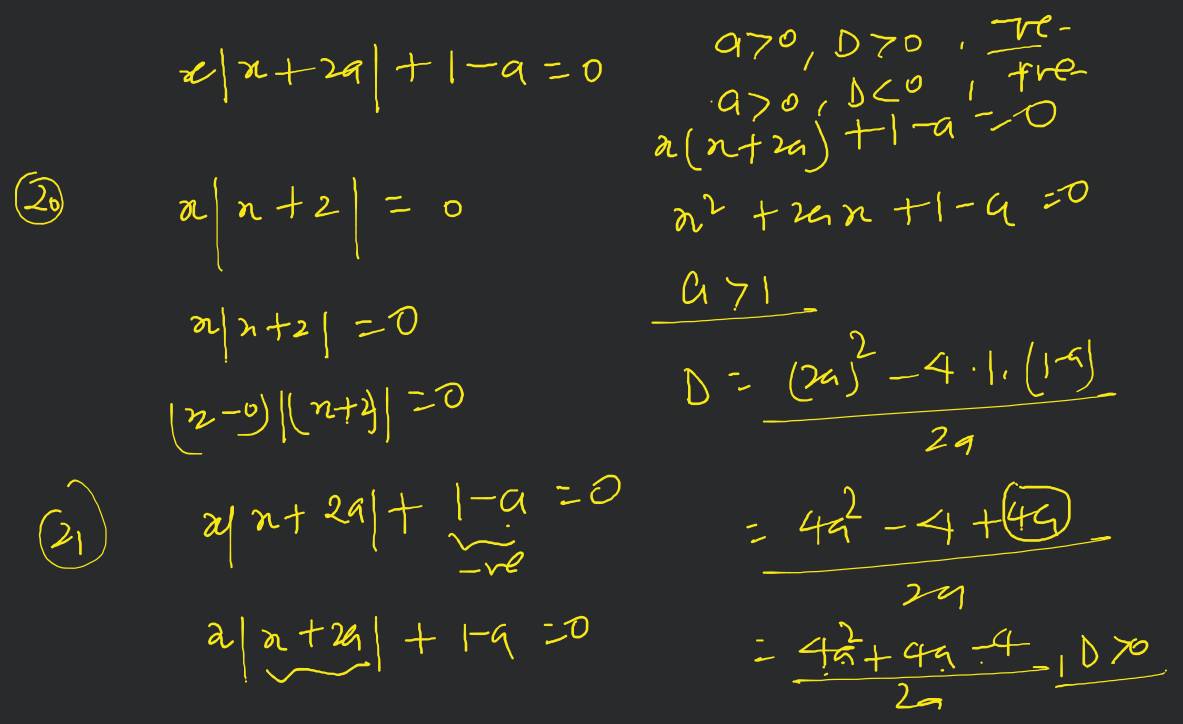 x|x+2a|+1-a=0
(20) x|x+2|=0
x|x+2|=0
(x-0)|(x+2)|=0
(21) x|x+2a|+1-a=0
-ve
x|x+2a|+1-a=0
a>0, D>0, -ve-
a>0, D<0, +ve-
x(x+2a)+1-a=0
x²+2ax+1-a=0
a>1
D=(2a)²-4.1.(1-a)
2a
=4a²-4+4a
2a
=4a²+4a-4, D>0
2a